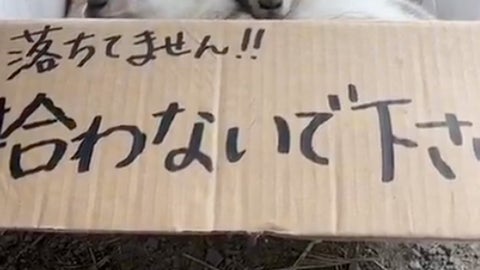 落ちてません!!
拾わないで下さ